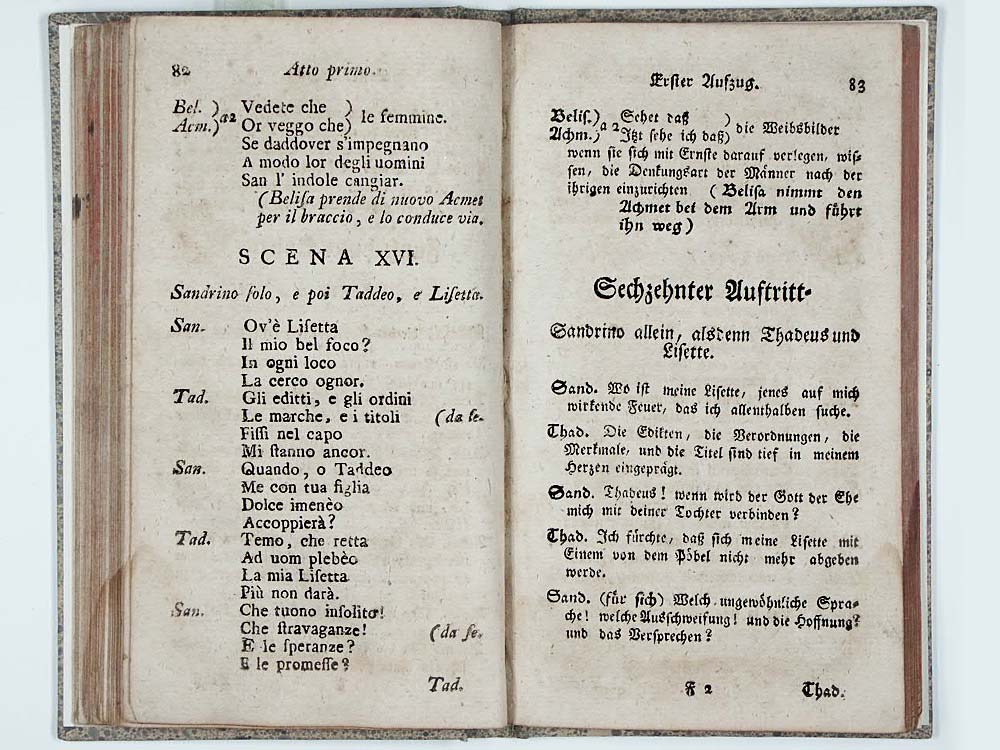 82 Atto primo.
Bel. ) a2 Vedete che ) le femmine.
Acm.) Or veggo che)
Se daddover s'impegnano
A modo lor degli uomini
San l' indole cangiar.
(Beliſa prende di nuovo Acmet
per il braccio, e lo conduce via.
SCENA XVI.
Sandrino ſolo, e poi Taddeo, e Liſetta.
San. Ov'è Liſetta
Il mio bel foco?
In ogni loco
La cerco ognor.
Tad. Gli editti, e gli ordini
Le marche, e i titoli (da ſe.
Fiſſi nel capo
Mi ſtanno ancor.
San. Quando, o Taddeo
Me con tua figlia
Dolce imenèo
Accoppierà?
Tad. Temo, che retta
Ad uom plebèo
La mia Liſetta
Più non darà.
San. Che tuono inſolito!
Che ſtravaganze! (da ſe.
E le ſperanze?
E le promeſſe?
Tad.
Erſter Aufzug. 83
Beliſ.) a 2 Sehet daß ) die Weibsbilder
Achm.) Itzt ſehe ich daß)
wenn ſie ſich mit Ernſte darauf verlegen, wiſ-
ſen, die Denkungsart der Männer nach der
ihrigen einzurichten (Beliſa nimmt den
Achmet bei dem Arm und führt
ihn weg)
Sechzehnter Auftritt.
Sandrino allein, alsdenn Thadeus und
Liſette.
Sand. Wo iſt meine Liſette, jenes auf mich
wirkende Feuer, das ich allenthalben ſuche.
Thad. Die Edikten, die Verordnungen, die
Merkmale, und die Titel ſind tief in meinem
Herzen eingeprägt.
Sand. Thadeus! wenn wird der Gott der Ehe
mich mit deiner Tochter verbinden?
Thad. Ich fürchte, daß ſich meine Liſette mit
Einem von dem Pöbel nicht mehr abgeben
werde.
Sand. (für ſich) Welch ungewöhnliche Spra-
che! welche Ausſchweifung! und die Hoffnung?
und das Verſprechen?
F 2 Thad.